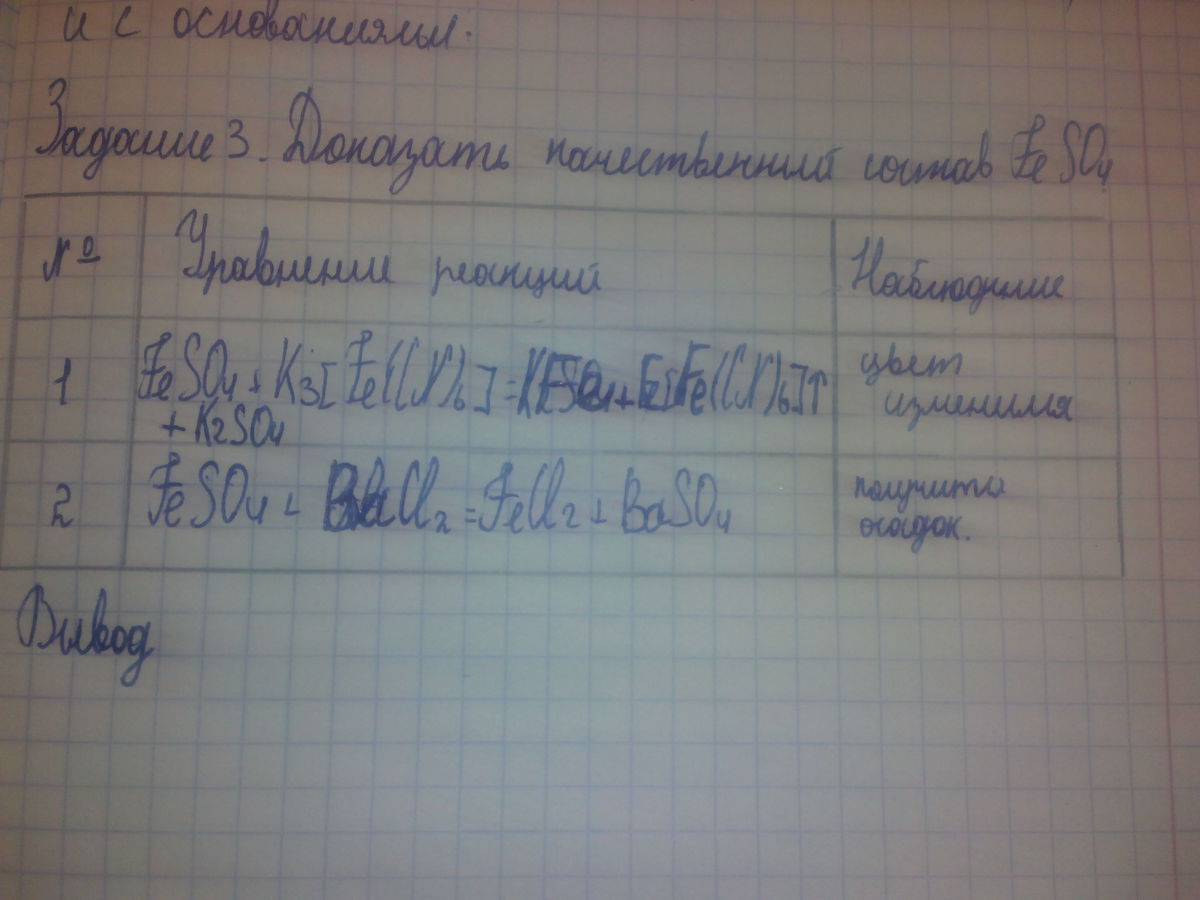 и с основаниями.
Задание 3. Доказать качественный состав FeSO4
№ Уравнение реакций Наблюдение
1 FeSO4 + K3[Fe(CN)6] = [Fe(CN)6]↑ цвет
+ K2SO4 изменился
2 FeSO4 + BaCl2 = FeCl2 + BaSO4 получите
осадок.
Вывод